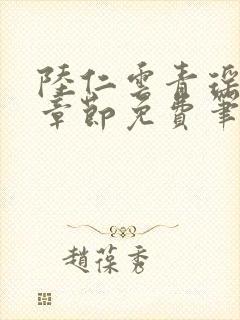 陸仁雲青瑶
章節免費筆
趙葆秀